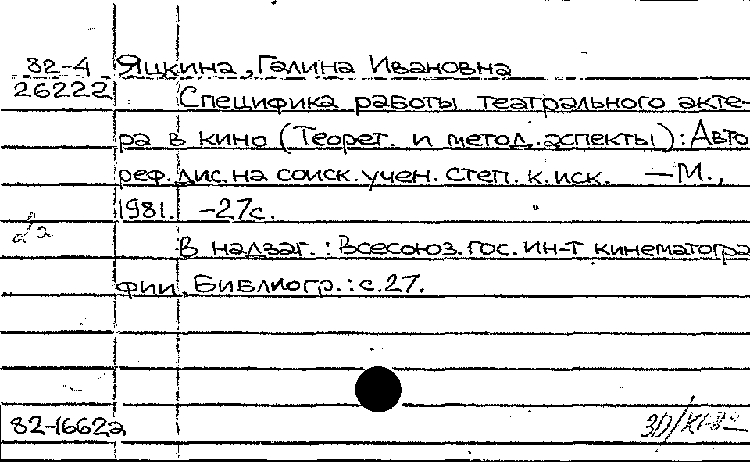 82-4 Яцкина, Галина Ивановна
26222 Специфика работы театрального акте-
ра в кино (Теорет. и метод. аспекты): Авто
реф. дис. на соиск. учен. степ. к. иск. — М.,
1981. - 27с.
В надзаг.: Всесоюз. гос. ин-т кинематогра
фии. Библиогр.: с. 27.
82-1662а